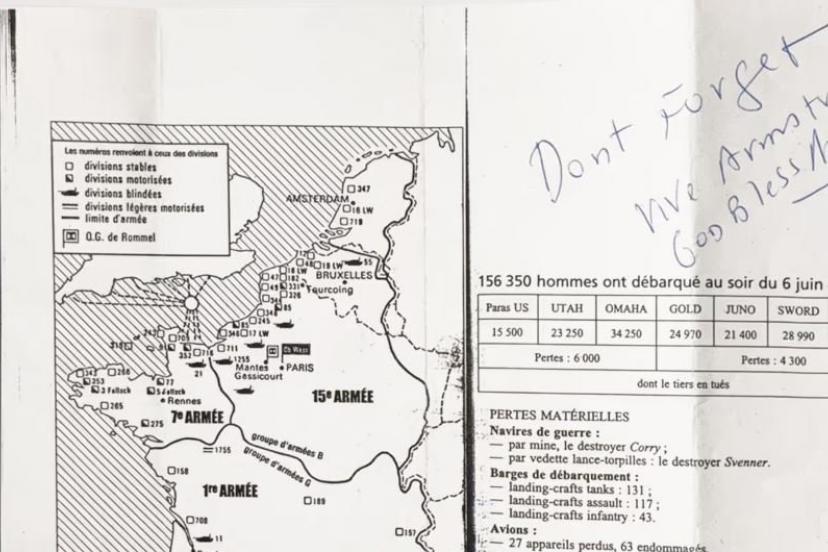 Les numéros renvoient à ceux des divisions
divisions stables
divisions motorisées
divisions blindées
divisions légères motorisées
limite d'armée
Q.G. de Rommel
AMSTERDAM
347
16 LW
719
BRUXELLES
Tourcoing
Mantes
Gassicourt
PARIS
Rennes
15e ARMÉE
7e ARMÉE
1re ARMÉE
groupe d'armées B
groupe d'armées G
711
17 LW
21
77
353
265
275
1755
158
189
708
11
157
Dont Forget
Vive
God Bless
156 350 hommes ont débarqué au soir du 6 juin
Paras US UTAH OMAHA GOLD JUNO SWORD
15 500 23 250 34 250 24 970 21 400 28 990
Pertes : 6 000 Pertes : 4 300
dont le tiers en tués
PERTES MATÉRIELLES
Navires de guerre :
— par mine, le destroyer Corry ;
— par vedette lance-torpilles : le destroyer Svenner.
Barges de débarquement :
— landing-crafts tanks : 131 ;
— landing-crafts assault : 117 ;
— landing-crafts infantry : 43.
Avions :
— 27 appareils perdus, 63 endommagés